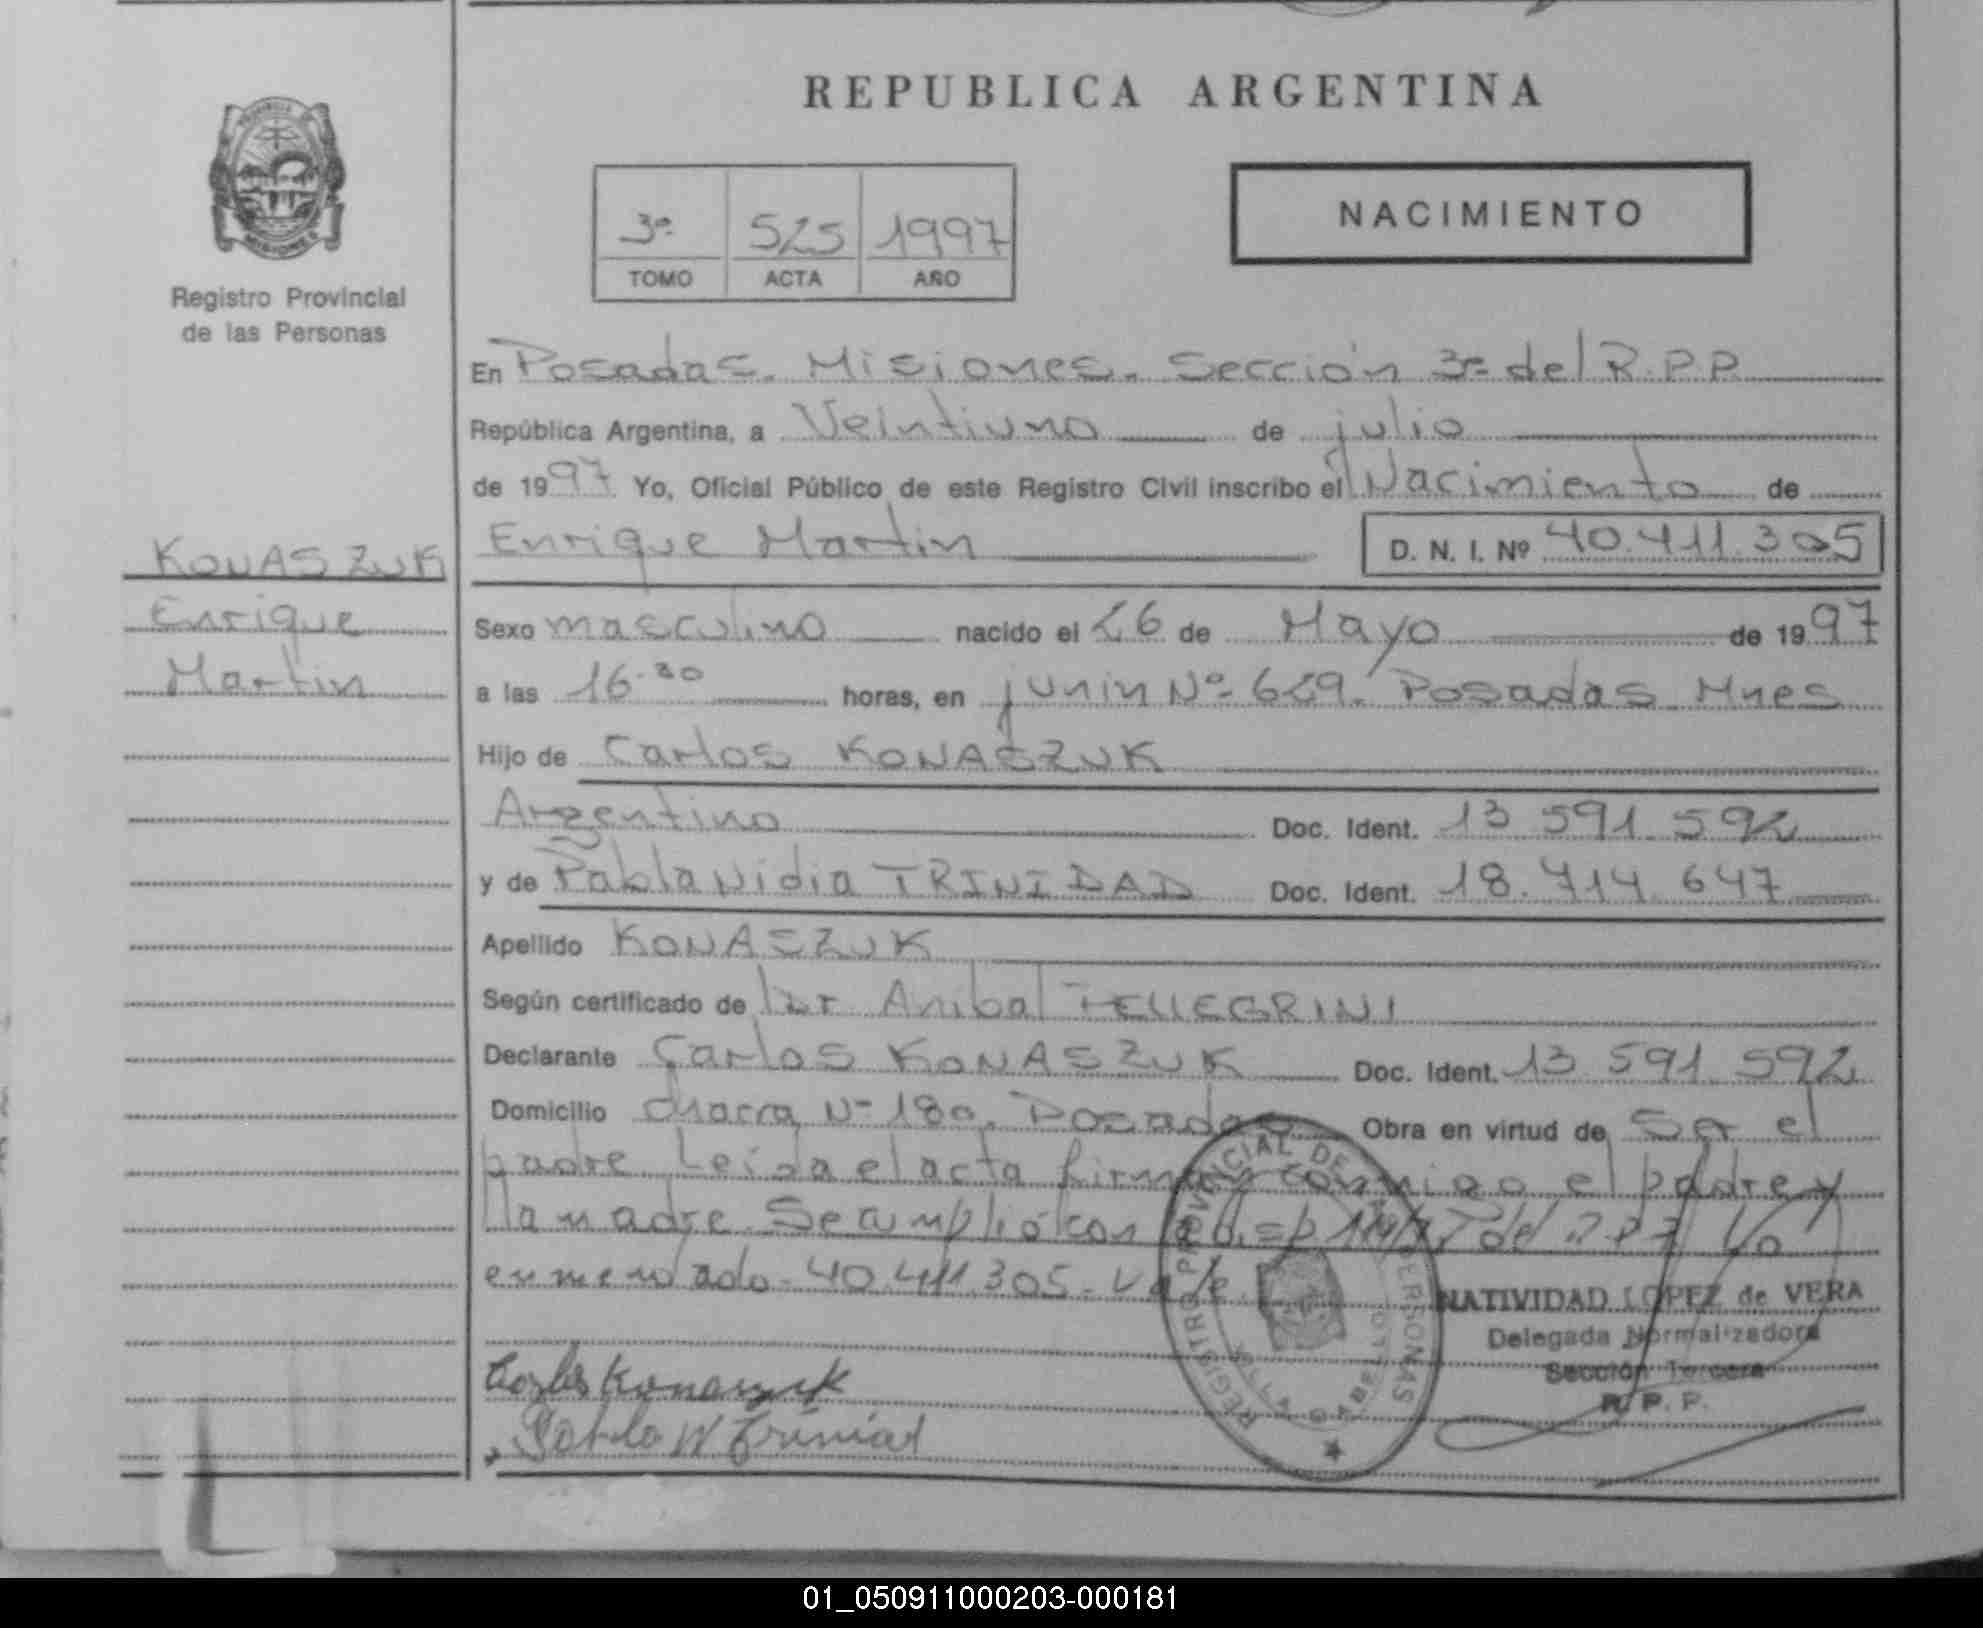 REPUBLICA ARGENTINA
PROVINCIA
MISIONES
Registro Provincial
de las Personas
3º 525 1997
TOMO ACTA AÑO
NACIMIENTO
En Posadas. Misiones. Sección 3º del R.P.P.
República Argentina, a Veintiuno de julio
de 1997 Yo, Oficial Público de este Registro Civil inscribo el Nacimiento de
Enrique Martin D. N. I. Nº 40.411.305
KONASZUK
Enrique
Martin
Sexo masculino nacido el 26 de Mayo de 1997
a las 16.30 horas, en junin Nº 629. Posadas Mnes
Hijo de Carlos KONASZUK
Argentino Doc. Ident. 13 591 592
y de Pabla Nidia TRINIDAD Doc. Ident. 18.714 647
Apellido KONASZUK
Según certificado de Dr Anibal PELLEGRINI
Declarante Carlos KONASZUK Doc. Ident. 13 591 592
Domicilio charra Nº 180. Posadas Obra en virtud de Ser el
padre Leida el acta firman conmigo el padre y
la madre. Se cumplió con la Disp del Lo
enmendado - 40.411.305 - Vale
REGISTRO PROVINCIAL DE PERSONAS
NATIVIDAD LOPEZ de VERA
Delegada Normalizadora
Sección Tercera
R. P. P.
Carlos Konaszuk
Pabla N Trinidad
01_050911000203-000181